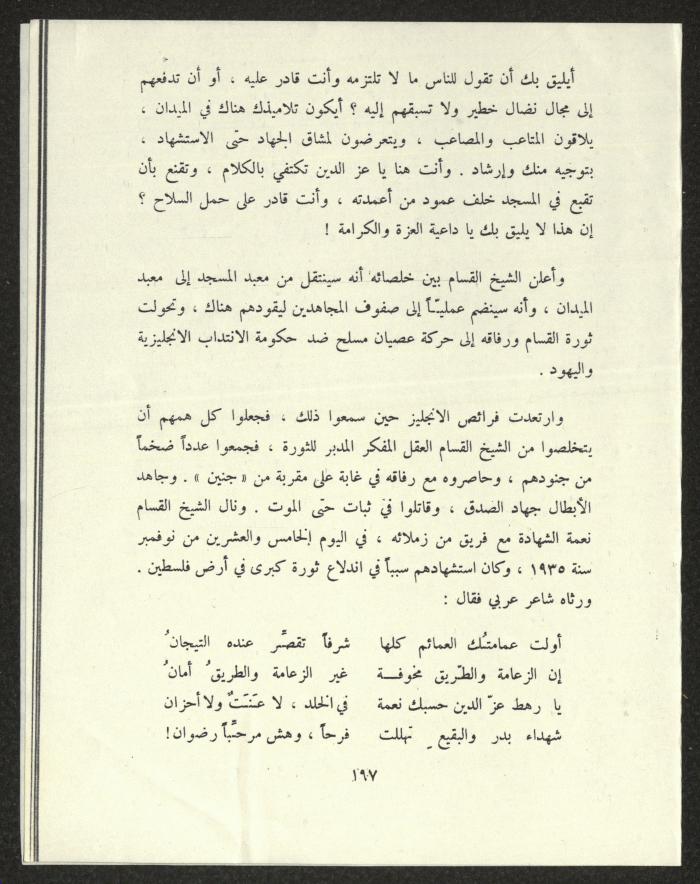 أيليق بك أن تقول للناس ما لا تلتزمه وأنت قادر عليه ، أو أن تدفعهم
إلى مجال نضال خطير ولا تسبقهم إليه ؟ أيكون تلاميذك هناك في الميدان ،
يلاقون المتاعب والمصاعب ، ويتعرضون لمشاق الجهاد حتى الاستشهاد ،
بتوجيه منك وإرشاد . وأنت هنا يا عز الدين تكتفي بالكلام ، وتقنع بأن
تقبع في المسجد خلف عمود من أعمدته ، وأنت قادر على حمل السلاح ؟
إن هذا لا يليق بك يا داعية العزة والكرامة !
وأعلن الشيخ القسام بين خلصائه أنه سينتقل من معبد المسجد إلى معبد
الميدان ، وأنه سينضم عمليّـاً إلى صفوف المجاهدين ليقودهم هناك ، وتحولت
ثورة القسام ورفاقه إلى حركة عصيان مسلح ضد حكومة الانتداب الانجليزية
واليهود .
وارتعدت فرائص الانجليز حين سمعوا ذلك ، فجعلوا كل همهم أن
يتخلصوا من الشيخ القسام العقل المفكر المدبر للثورة ، فجمعوا عدداً ضخماً
من جنودهم ، وحاصروه مع رفاقه في غابة على مقربة من « جنين » . وجاهد
الأبطال جهاد الصدق ، وقاتلوا في ثبات حتى الموت . ونال الشيخ القسام
نعمة الشهادة مع فريق من زملائه ، في اليوم الخامس والعشرين من نوفمبر
سنة ١٩٣٥ ، وكان استشهادهم سبباً في اندلاع ثورة كبرى في أرض فلسطين .
ورثاه شاعر عربي فقال :
أولت عمامتُك العمائم كلها شرفاً تقصِّر عنده التيجانُ
إن الزعامة والطّريق مخوفــة غير الزعامة والطريقُ أمانُ
يا رهط عزّ الدين حسبك نعمة في الخلد ، لا عَنَتٌ ولا أحزان
شهداء بدر والبقيع تهللت فرحاً ، وهش مرحِّباً رضوان !
١٩٧